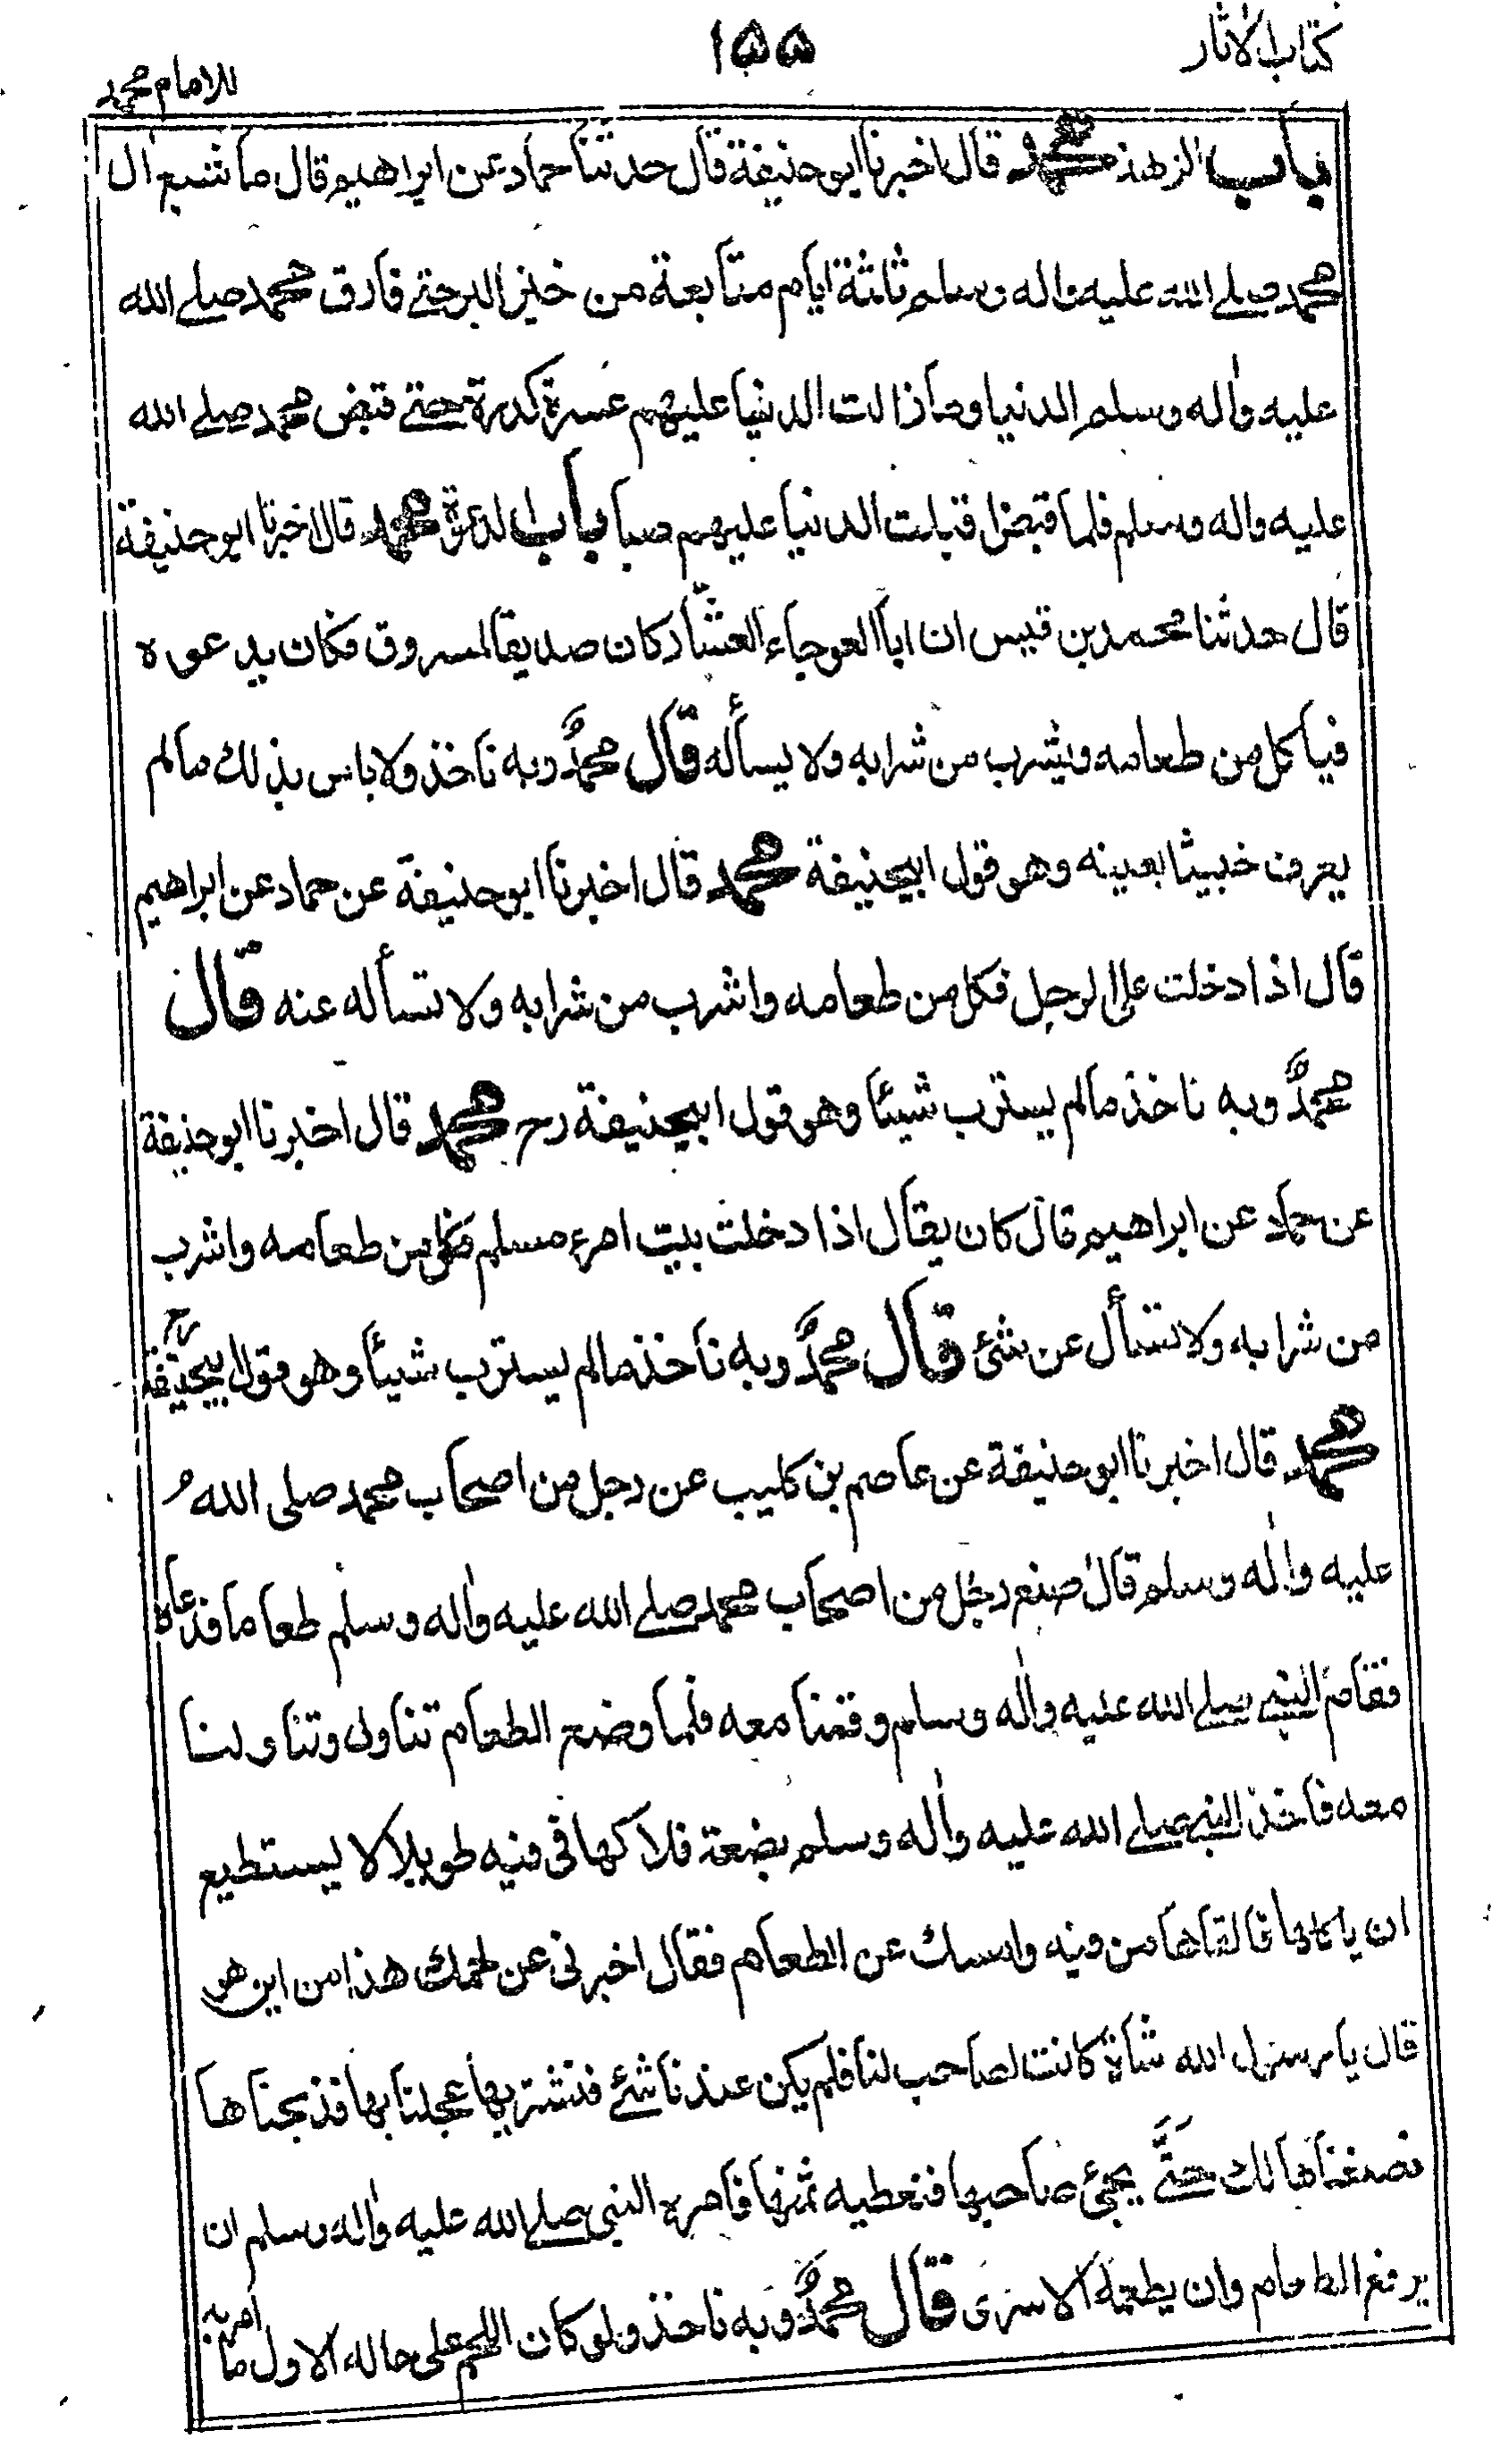 كتاب الاثار
١٥٥
للامام محمد
باب الزهد محمد قال اخبرنا ابو حنيفة قال حدثنا حماد عن ابراهيم قال ما شبع ال
محمد صلى الله عليه واله وسلم ثلثة ايام متتابعة من خبز البر حتى فارق محمد صلى الله
عليه واٰله وسلم الدنيا وما زالت الدنيا عليهم عسرة كدرة حتى قبض محمد صلى الله
عليه واله وسلم فلما قبض اقبلت الدنيا عليهم صبا باب الدعوة محمد قال اخبرنا ابو حنيفة
قال حدثنا محمد بن قيس ان ابا العوجاء العشّار كان صديقا لمسروق فكان يدعوه
فياكل من طعامه ويشرب من شرابه ولا يسأله قال محمدٌ وبه ناخذ ولا باس بذلك ما لم
يعرف خبيثا بعينه وهو قول ابيحنيفة محمد قال اخبرنا ابو حنيفة عن حماد عن ابراهيم
قال اذا دخلت على الرجل فكل من طعامه واشرب من شرابه ولا تسأله عنه قال
محمدٌ وبه ناخذ ما لم يسترب شيئا وهو قول ابيحنيفة رح محمد قال اخبرنا ابو حنيفة
عن حماد عن ابراهيم قال كان يقال اذا دخلت بيت امرء مسلم فكل من طعامه واشرب
من شرابه ولا تسأل عن شئ قال محمدٌ وبه ناخذ ما لم يسترب شيئا وهو قول ابيحنيفة رح
محمد قال اخبرنا ابو حنيفة عن عاصم بن كليب عن رجل من اصحاب محمد صلى الله
عليه واٰله وسلم قال صنع رجل من اصحاب محمد صلى الله عليه واٰله وسلم طعاما فدعاه
فقام النبي صلى الله عليه واٰله وسلم وقمنا معه فلما وضع الطعام تناول وتناولنا
معه فاخذ النبي صلى الله عليه واٰله وسلم بضعة فلاكها في فيه طويلا لا يستطيع
ان ياكلها فالقاها من فيه وامسك عن الطعام فقال اخبرني عن لحمك هذا من اين هو
قال يا رسول الله شاة كانت لصاحب لنا فلم يكن عندنا شئ فنشتريها عجلنا بها فذبحناها
فصنعناها لك حتَّى يجئ صاحبها فنعطيه ثمنها فامره النبي صلى الله عليه واٰله وسلم ان
يرفع الطعام وان يطعمه الاسرى قال محمدٌ وبه ناخذ ولو كان اللحم على حاله الاول ما امر به